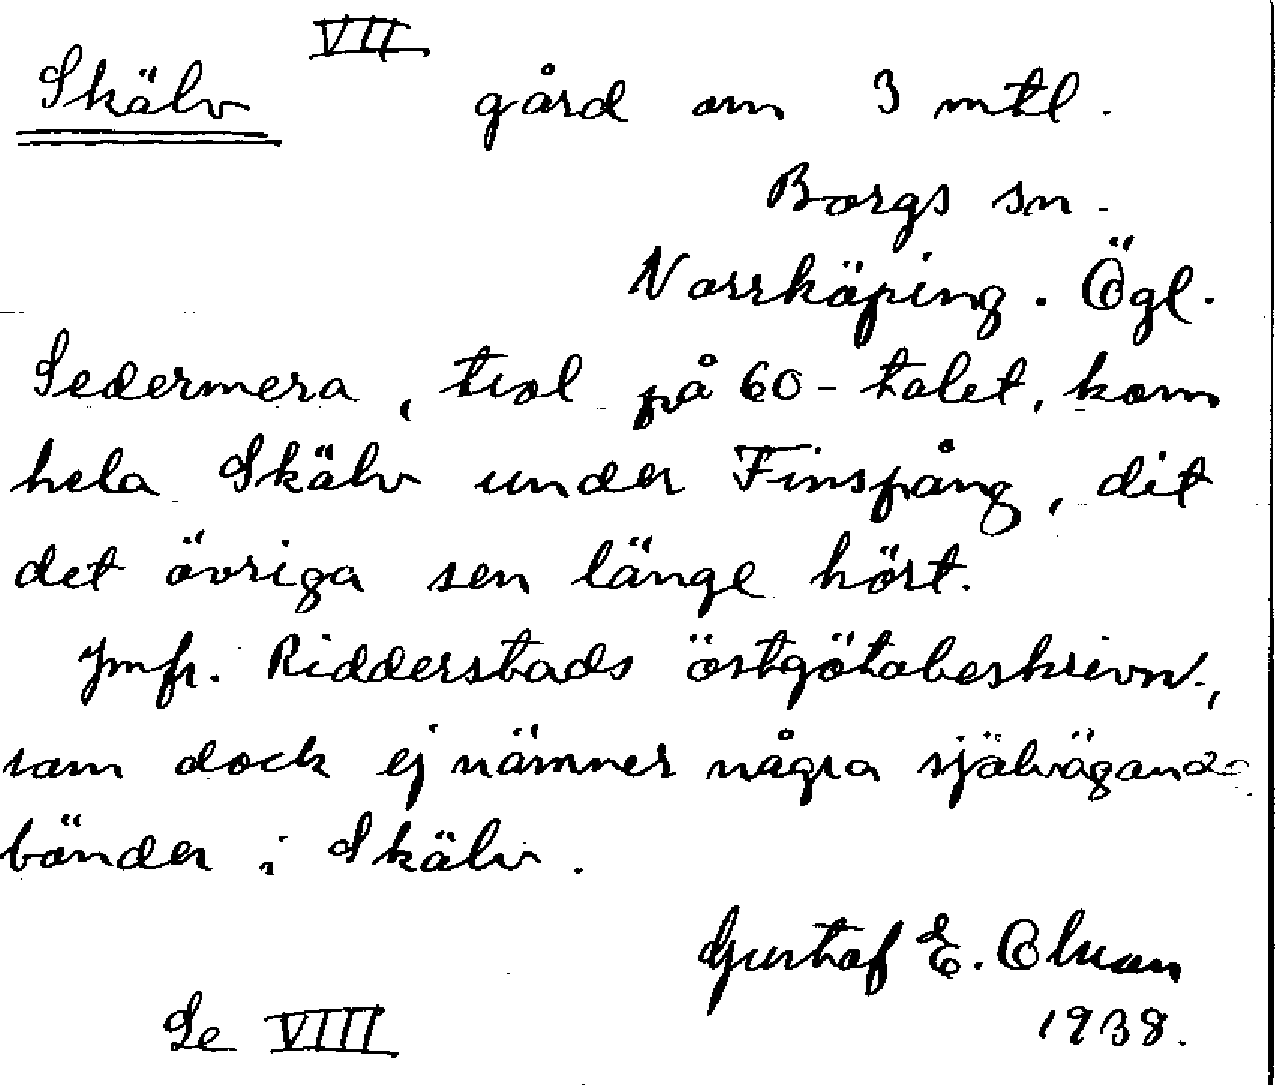 VII
Skälv gård om 3 mtl.
Borgs sn.
Norrköping. Ögl.
Sedermera, trol på 60-talet, kom
hela Skälv under Finspång, dit
det övriga sen länge hört.
Jmfr. Ridderstads östgötabeskrivn.,
som dock ej nämner några självägande
bönder i Skälv.
Gustaf E. Olsson
1938.
Se VIII